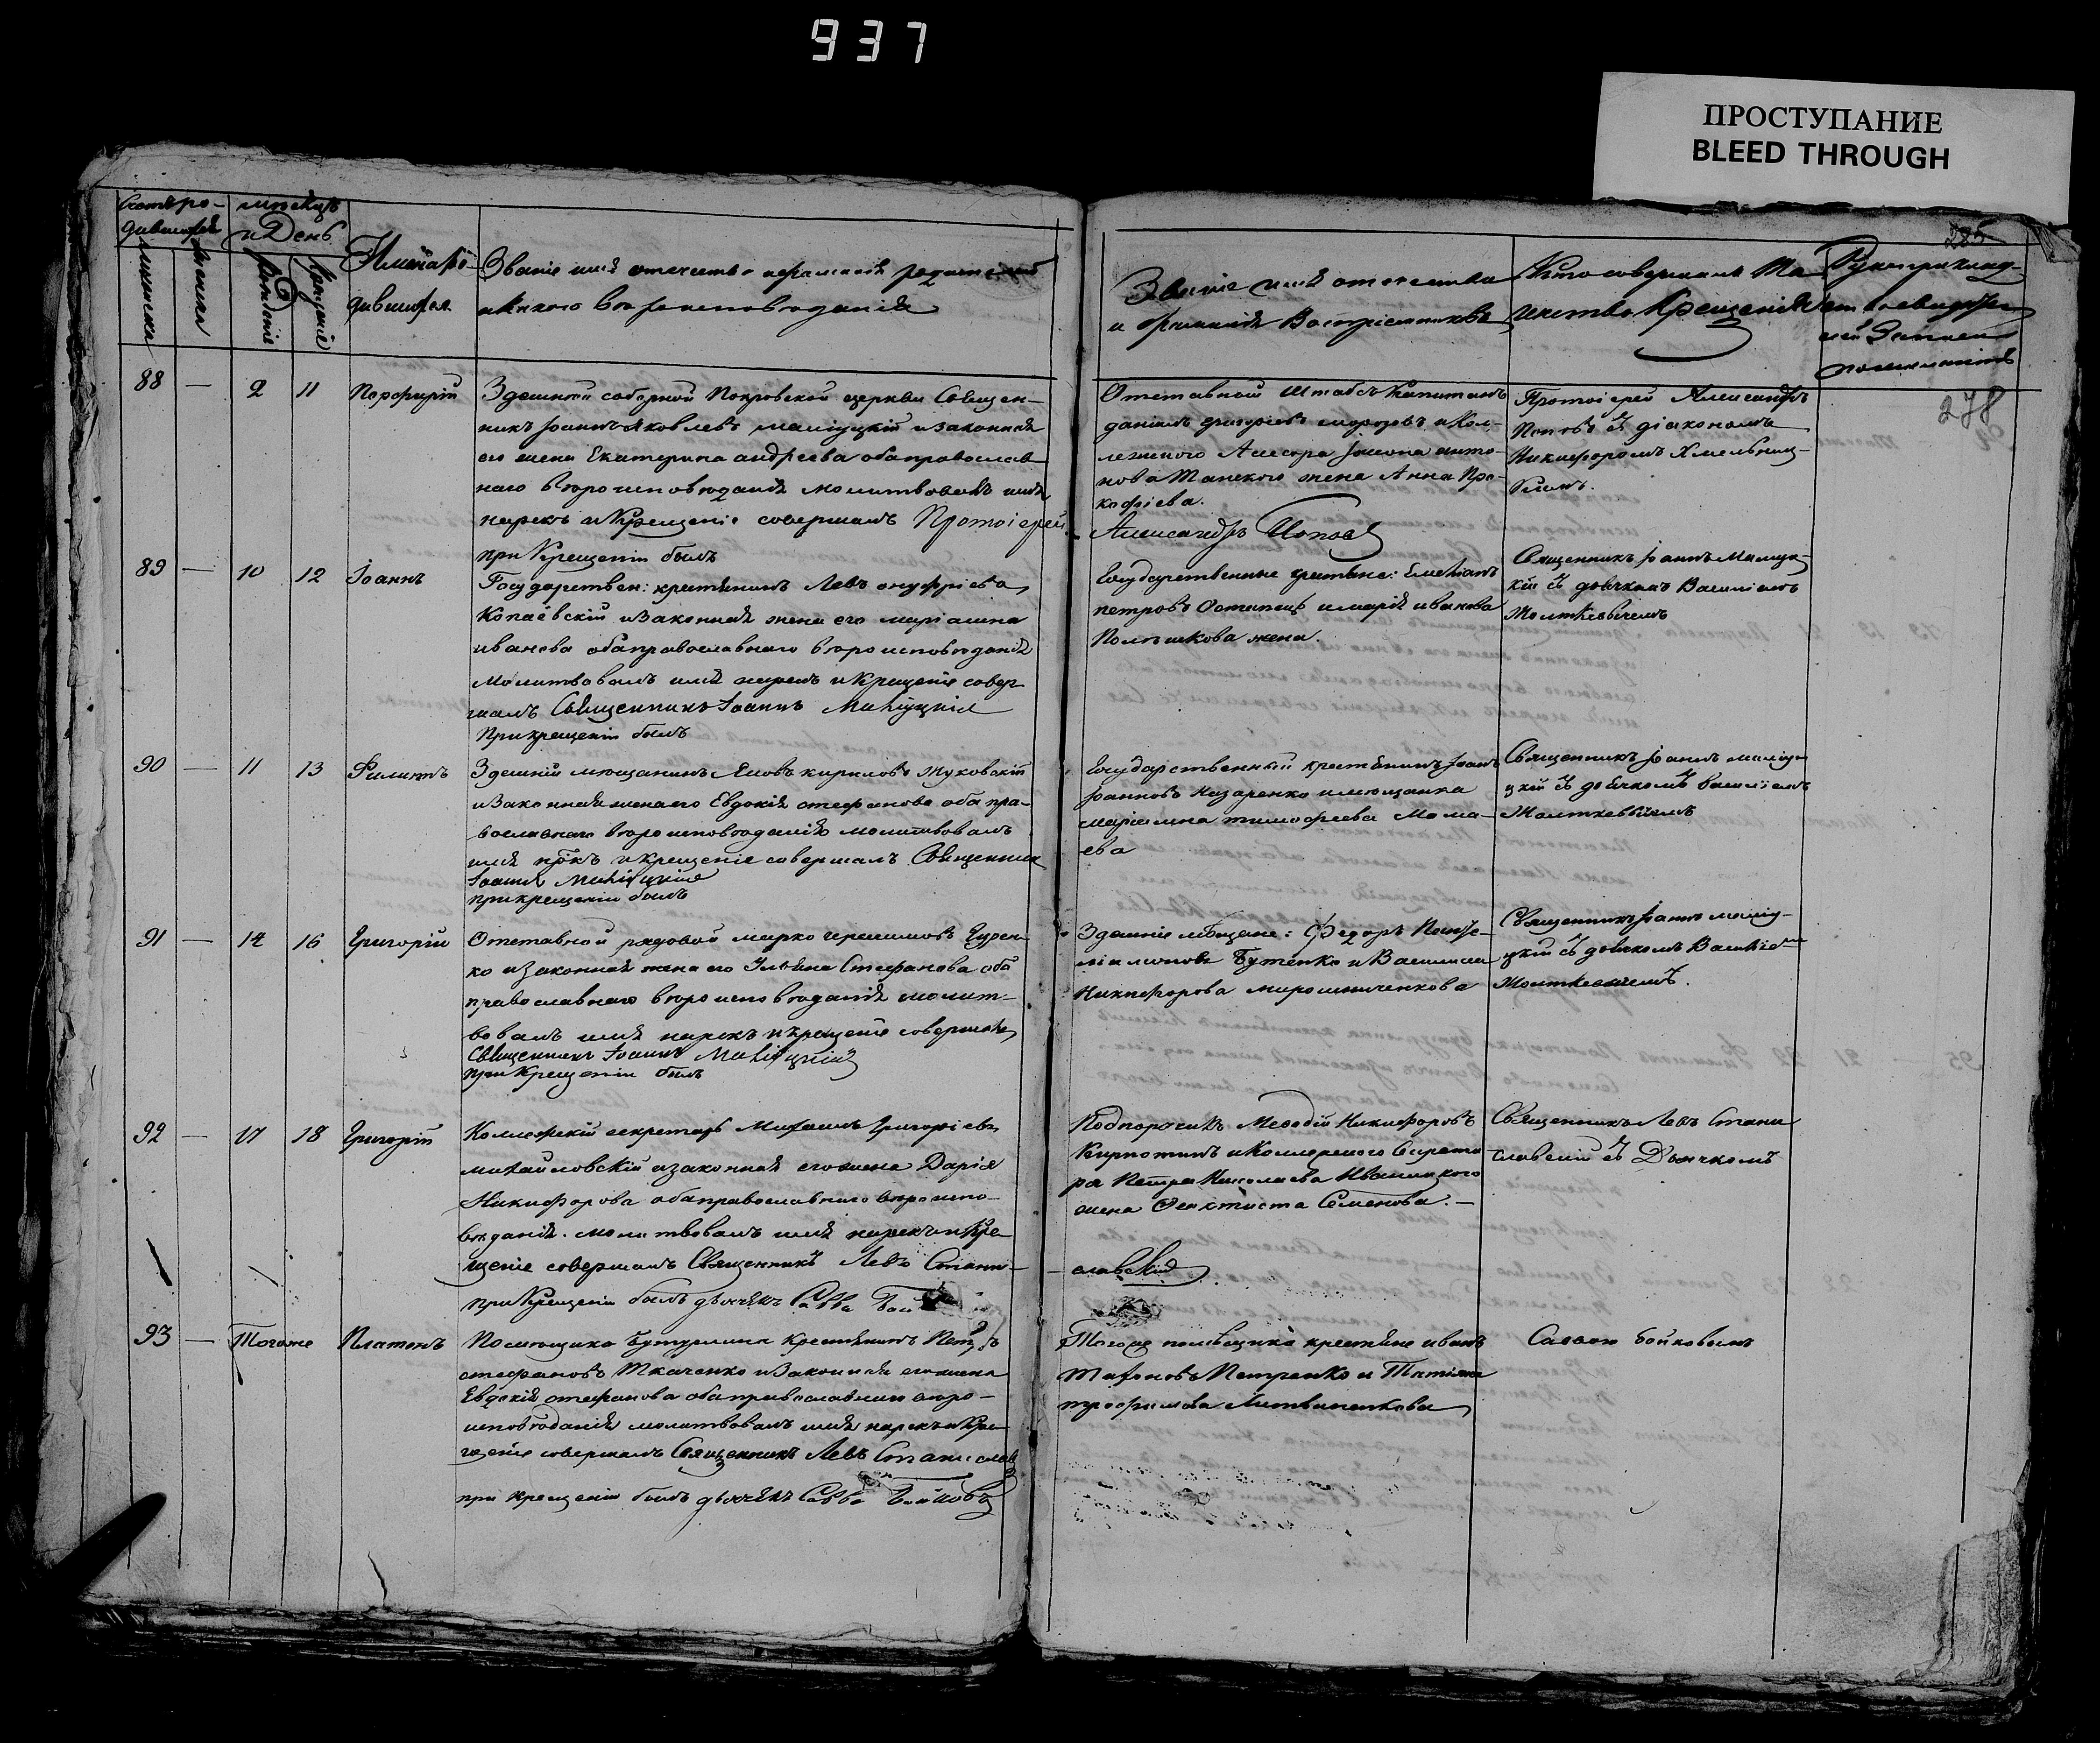 937
ПРОСТУПАНИЕ
BLEED THROUGH
285
278
мѣсяцъ
и День
Имя ро-
дившихся
Званіе имя отечество и фамилія родителей
и какого вѣроисповѣданія
Званіе имя отечество
и фамилія Воспріемниковъ
Кто совершалъ Та-
инство Крещенія
Рукоприклад-
88 — 2 11 Порфирій
Здешней соборной Покровской церкви Священ-
никъ Іоаннъ Яковлевъ и законная
его жена Екатерина андреева оба православ
наго вѣроисповѣданія молитвовалъ имя
нарекъ и Крещеніе совершалъ Протоіерей
при Крещеніи былъ
Отставной Штабсъ Капитанъ
даніилъ григорьевъ морозовъ и Кол-
лежского Ассесора анто-
нова жена Анна Про-
кофіева.
Александръ Поповъ
Протоіерей Александръ
Поповъ съ діакономъ
Никифоромъ Хмельниц-
кимъ.
89 — 10 12 Іоаннъ
Государствен: крестьянинъ Левъ онуфріевъ
Копаевскій и законная жена его маріамна
иванова оба православнаго вѣроисповѣданія
молитвовалъ имя нарекъ и Крещеніе совер
шалъ Священникъ Іоаннъ
При крещеніи былъ
Государственные крестьяне: Емельянъ
петровъ и марія иванова
жена.
Священникъ Іоаннъ
кій съ дьячкомъ Василіемъ
90 — 11 13 Филипъ
Здешній мещанинъ Яковъ кириловъ Жуковскій
и законная жена его Евдокія стефанова оба пра-
вославнаго вѣроисповѣданія молитвовалъ
имя нрекъ и крещеніе совершалъ Священникъ
Іоаннъ
при крещеніи былъ
Государственный крестьянинъ Іоанъ
Іоанновъ Назаренко и мещанка
маріамна тимофеева Мома-
ева
Священникъ Іоаннъ
цкій съ дьячкомъ василіемъ
91 — 14 16 Григорій
Отставной рядовой марко герасимовъ
ко и законная жена его Ульяна Стефанова оба
православнаго вѣроисповѣданія молит-
вовалъ имя нарекъ и крещеніе совершалъ
Священникъ Іоаннъ
при Крещеніи былъ
Здешніе мещане: Федоръ
Бутенко и Василиса
Никифорова мирошниченкова
Священникъ Іоаннъ
цкій съ дьячкомъ Василіемъ
92 — 17 18 Григорій
Коллежскій секретарь Михаилъ Григорьевъ
михайловскій и законная его жена Дарія
Никифорова оба православнаго вѣроиспо-
вѣданія. молитвовалъ имя нарекъ и Кре-
щеніе совершалъ Священникъ Левъ Стани-
при Крещеніи былъ дьячекъ Савва
Подпоручикъ Меѳодій Никифоровъ
Кирпотинъ и Коллежского Секрета
ра Петра Николаева
жена Феоктиста Семенова. —
славскій
Священникъ Левъ Стани
славскій съ Дьячкомъ
93 — Тогоже Платонъ
Помещика Бутурлина крестьянинъ Петръ
стефановъ Ткаченко и Законная его жена
Евдокія стефанова оба православнаго вѣро-
исповѣданія молитвовалъ имя нарекъ и Кре-
щеніе совершалъ Священникъ Левъ Станиславс
при крещеніи былъ дьячекъ Савва Бойковъ
Тогоже помѣщика крестьяне иванъ
Петренко и Татіана
трофимова Литвиненкова
Саввою Бойковымъ